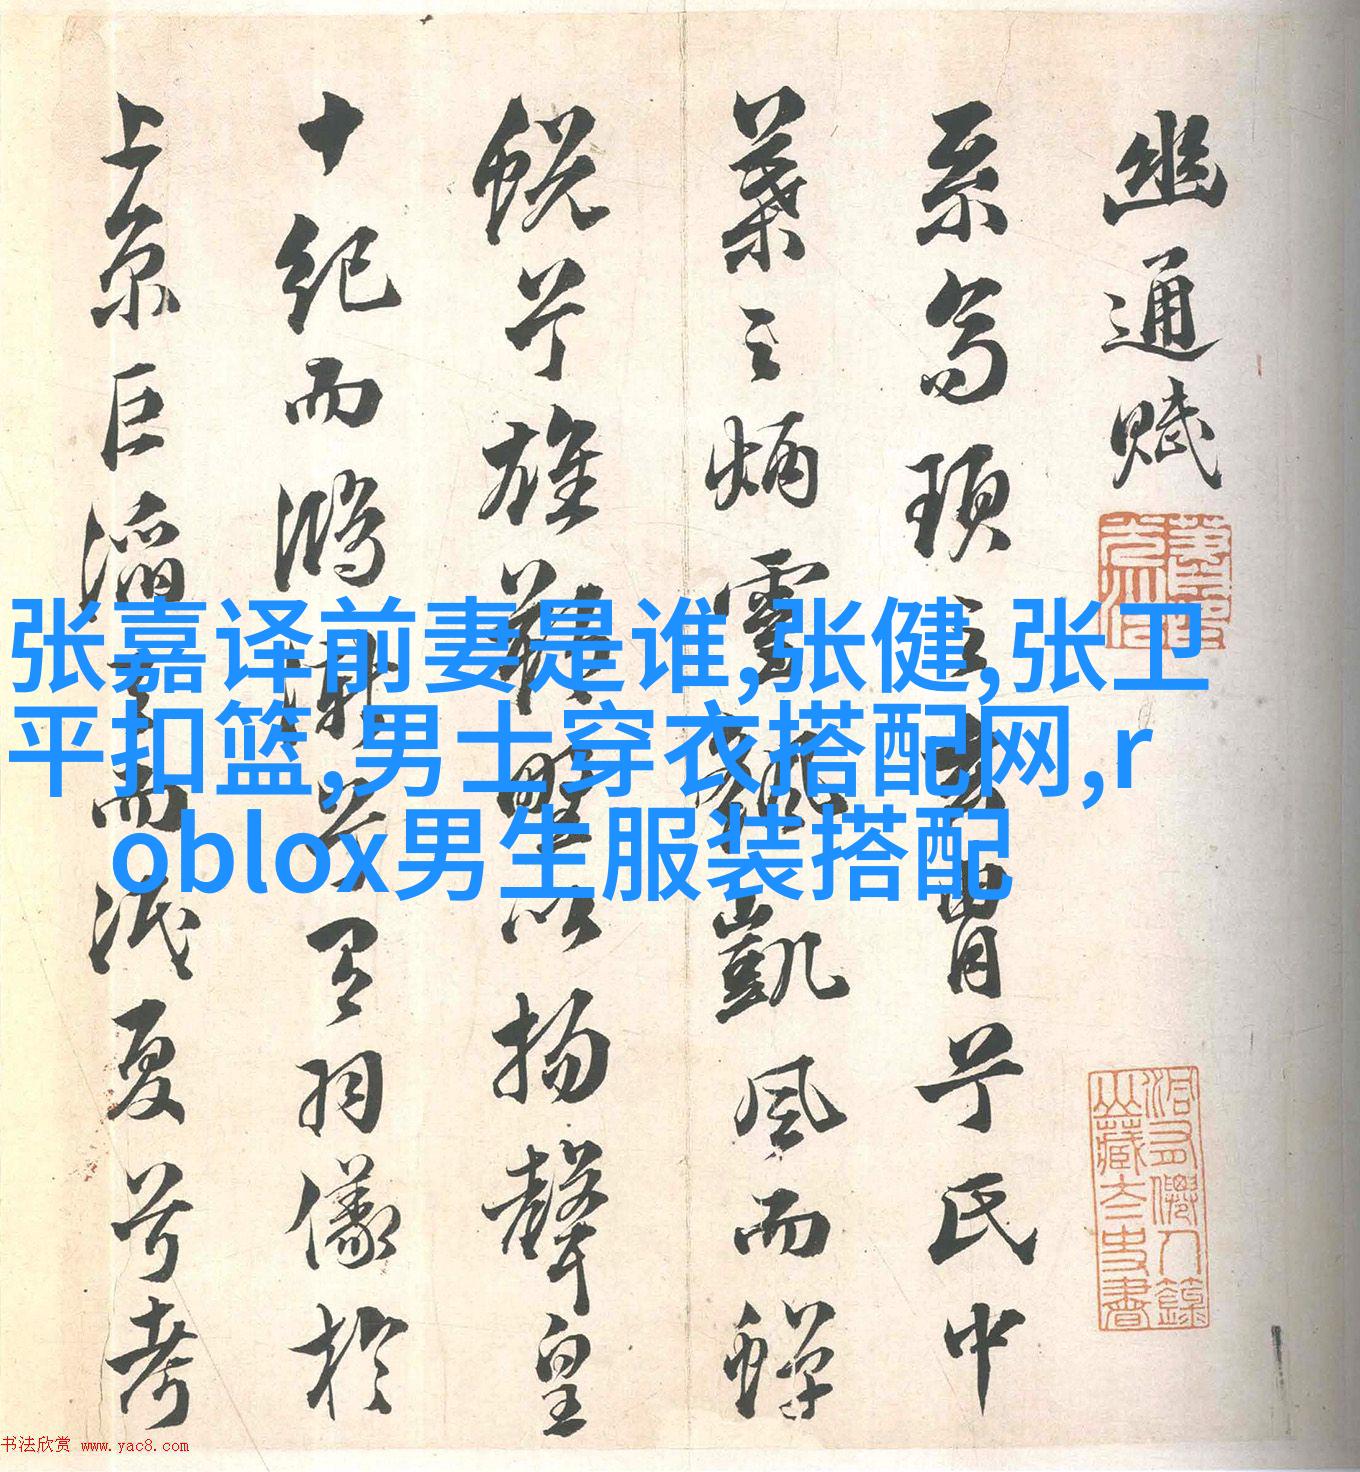 幽通賦
系高頊之玄胄兮氏中
葉之炳靈繇凱風而蟬
蛻兮雄朔野以揚聲皇
十紀而鴻漸兮有羽儀於
上京巨滔天而泯夏兮考
张嘉译前妻是谁,张健,张卫
平扣篮,男士穿衣搭配网,r
oblox男生服装搭配
书法欣赏 www.yac8.com